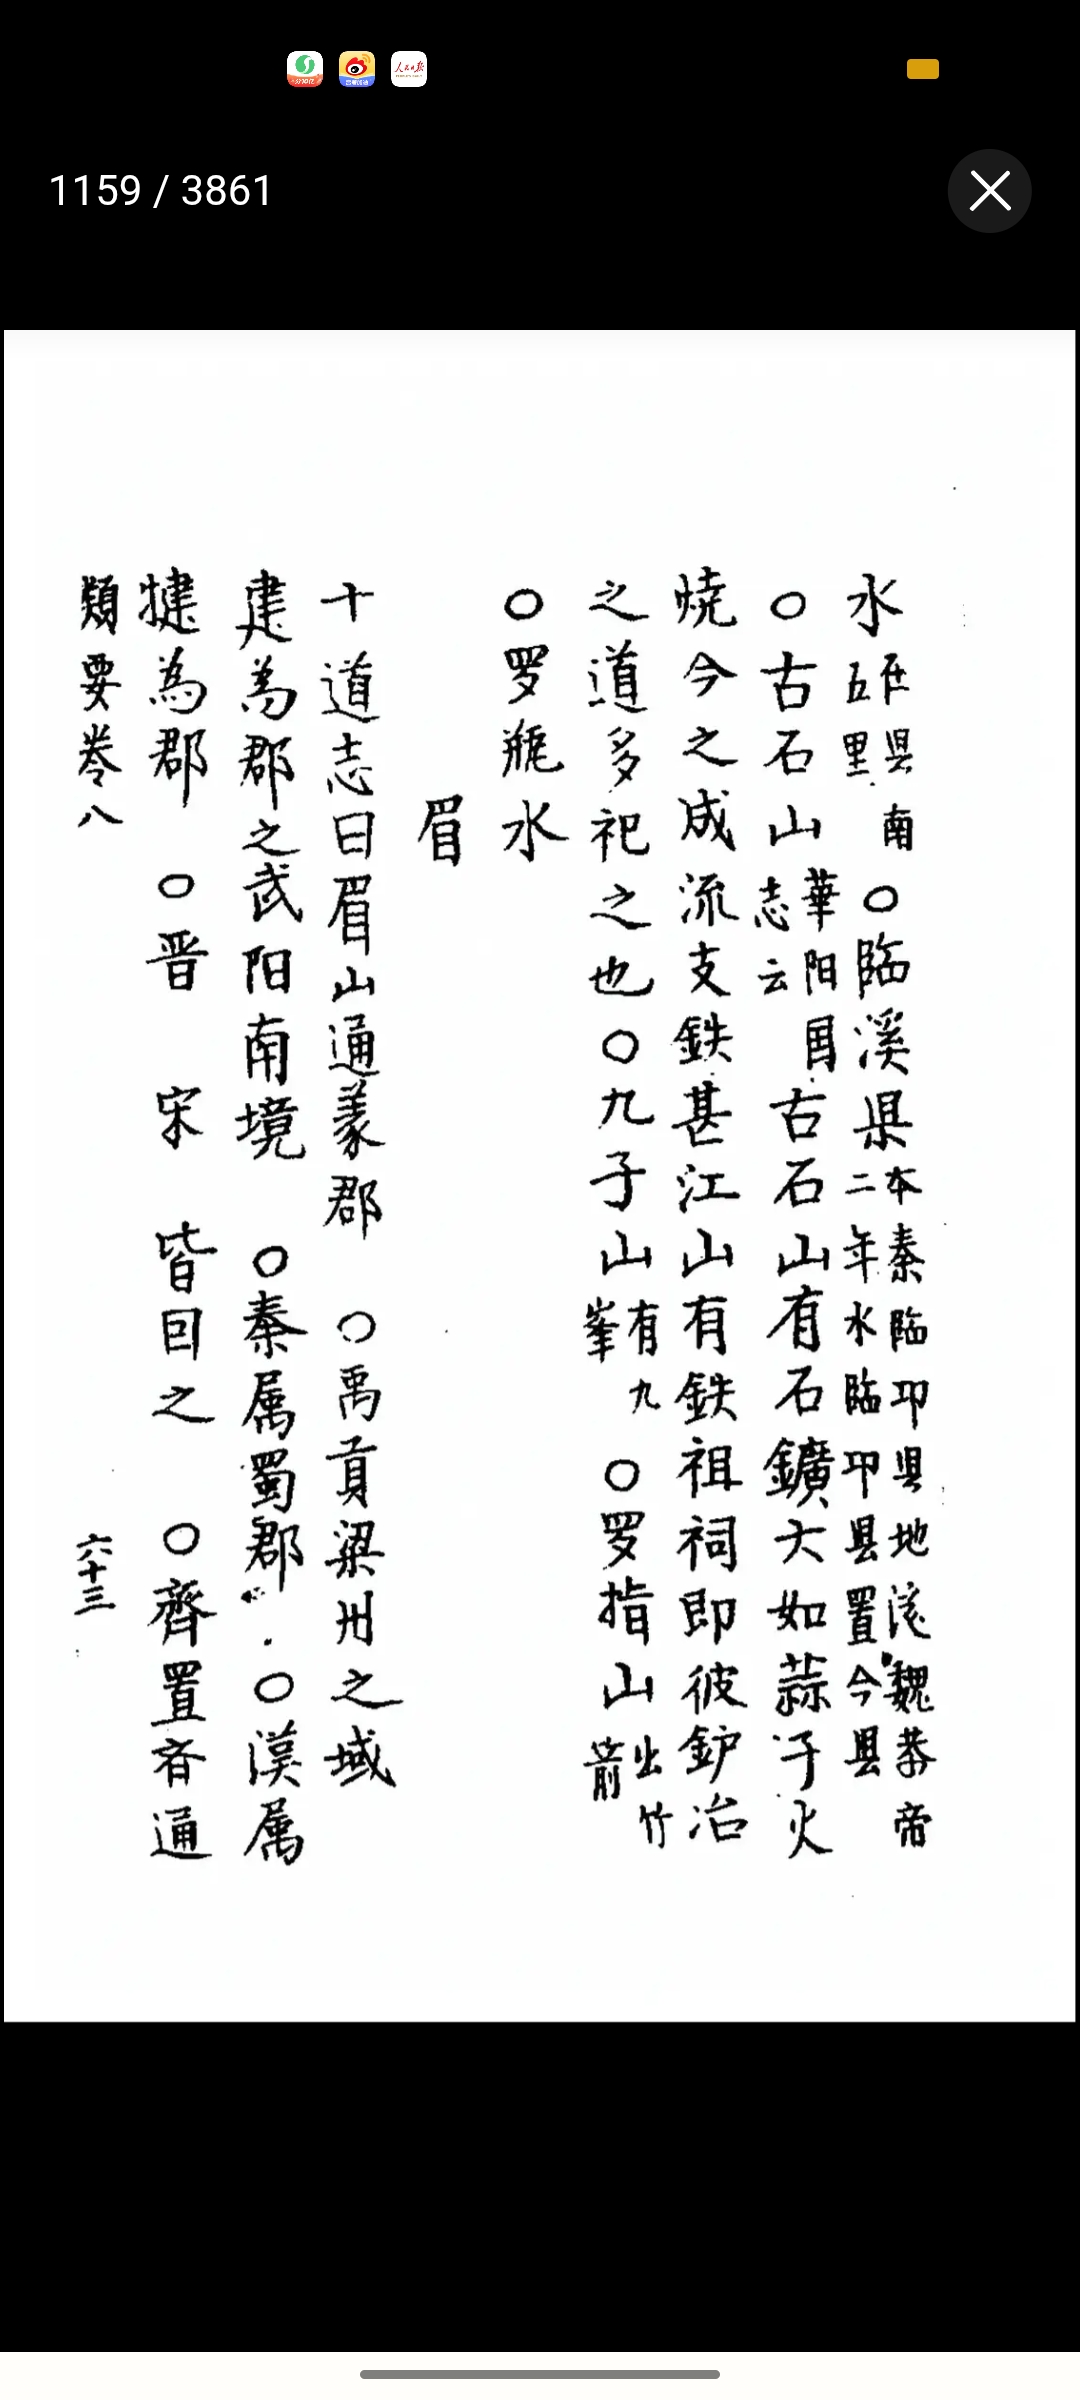 1159 / 3861
水在县南五里 〇臨溪県本秦臨邛县地後魏恭帝二年水臨邛县置今县
〇古石山華阳国志云古石山有石鑛大如蒜子火
燒今之成流支鉄甚江山有鉄祖祠即彼鈩冶
之道多祀之也〇九子山有九峯 〇罗指山出竹箭
〇罗瓶水
眉
十道志曰眉山通義郡 〇禹貢梁州之域
建為郡之武阳南境 〇秦属蜀郡 〇漢属
犍為郡 〇晋 宋 皆因之 〇齊置斉通
類要卷八 六十三